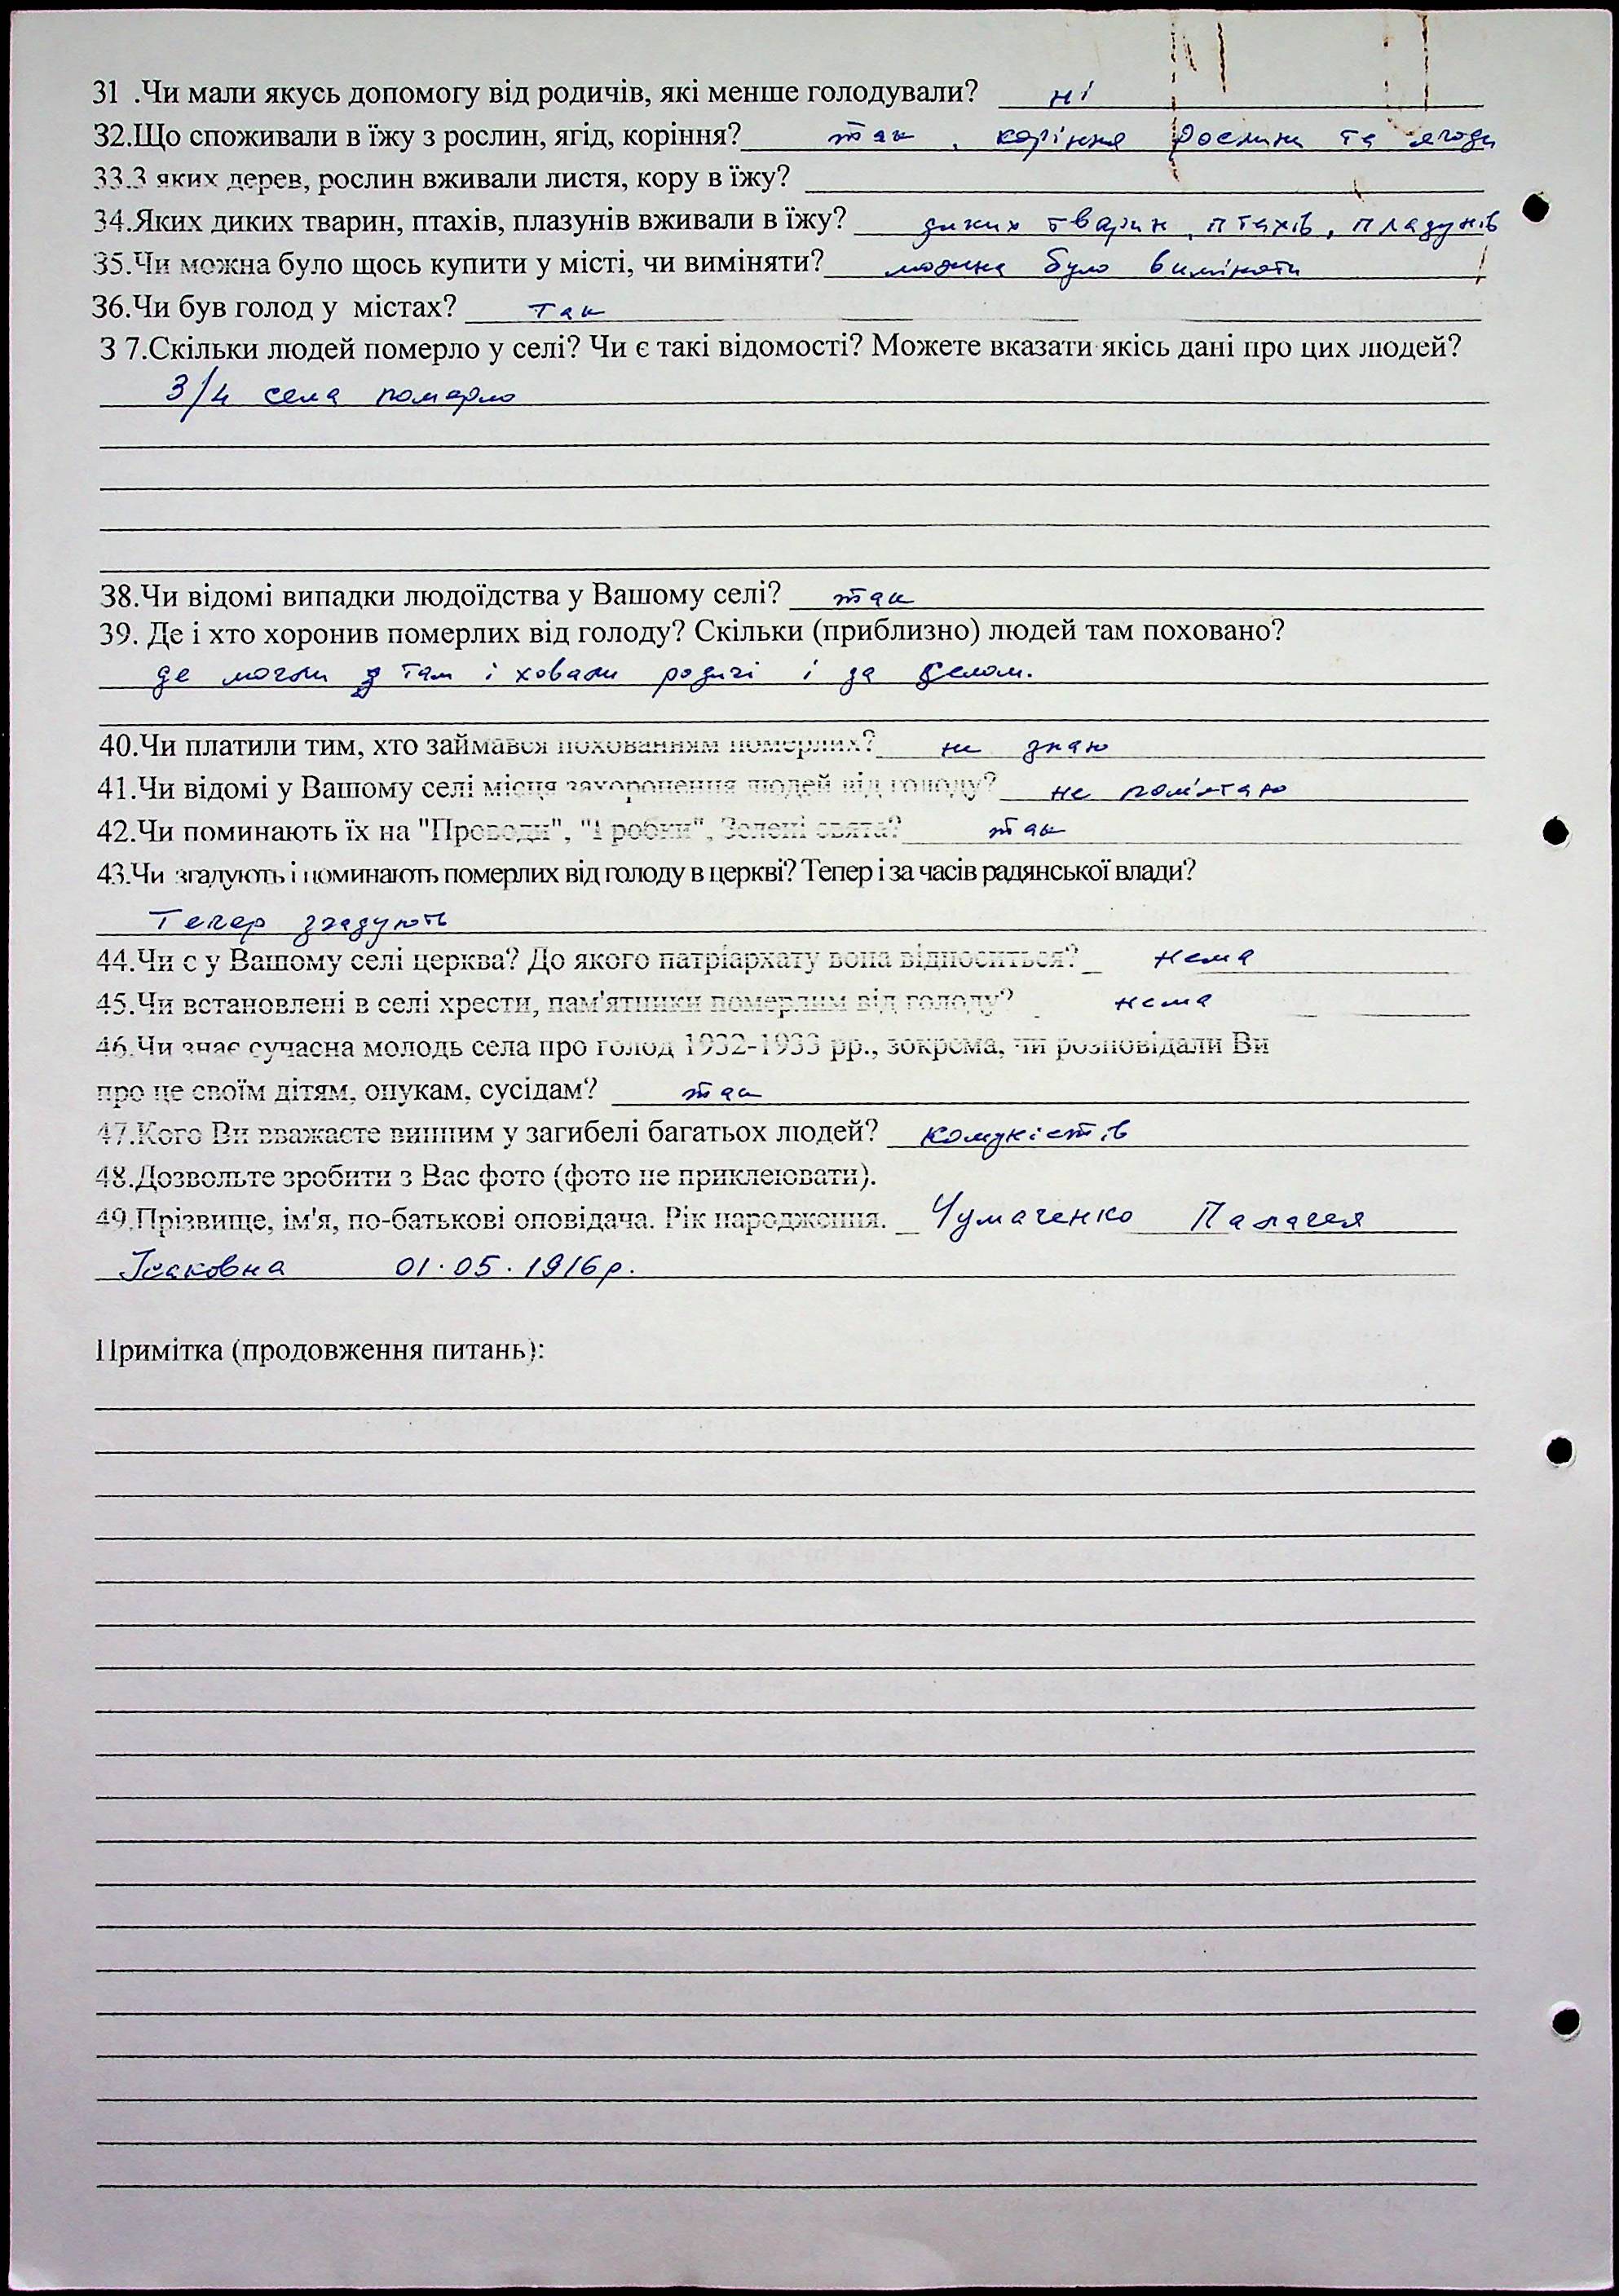 31 .Чи мали якусь допомогу від родичів, які менше голодували? ні
32.Що споживали в їжу з рослин, ягід, коріння? так, коріння рослини та ягоди
33.З яких дерев, рослин вживали листя, кору в їжу?
34.Яких диких тварин, птахів, плазунів вживали в їжу? диких тварин, птахів, плазунів
35.Чи можна було щось купити у місті, чи виміняти? можна було виміняти
36.Чи був голод у містах? так
3 7.Скільки людей померло у селі? Чи є такі відомості? Можете вказати якісь дані про цих людей?
3/4 села померло
38.Чи відомі випадки людоїдства у Вашому селі? так
39. Де і хто хоронив померлих від голоду? Скільки (приблизно) людей там поховано?
де могли там і ховали родичі і за селом.
40.Чи платили тим, хто займався похованням померлих? не знаю
41.Чи відомі у Вашому селі місця захоронення людей від голоду? не пам'ятаю
42.Чи поминають їх на "Проводи", "Гробки", Зелені свята? так
43.Чи згадують і поминають померлих від голоду в церкві? Тепер і за часів радянської влади?
Тепер згадують
44.Чи є у Вашому селі церква? До якого патріархату вона відноситься? нема
45.Чи встановлені в селі хрести, пам'ятники померлим від голоду? нема
46.Чи знає сучасна молодь села про голод 1932-1933 рр., зокрема, чи розповідали Ви
про це своїм дітям, онукам, сусідам? так
47.Кого Ви вважаєте винним у загибелі багатьох людей? комуністів
48.Дозвольте зробити з Вас фото (фото не приклеювати).
49.Прізвище, ім'я, по-батькові оповідача. Рік народження. Чумаченко Палагея
Ісаковна 01.05.1916р.
Примітка (продовження питань):